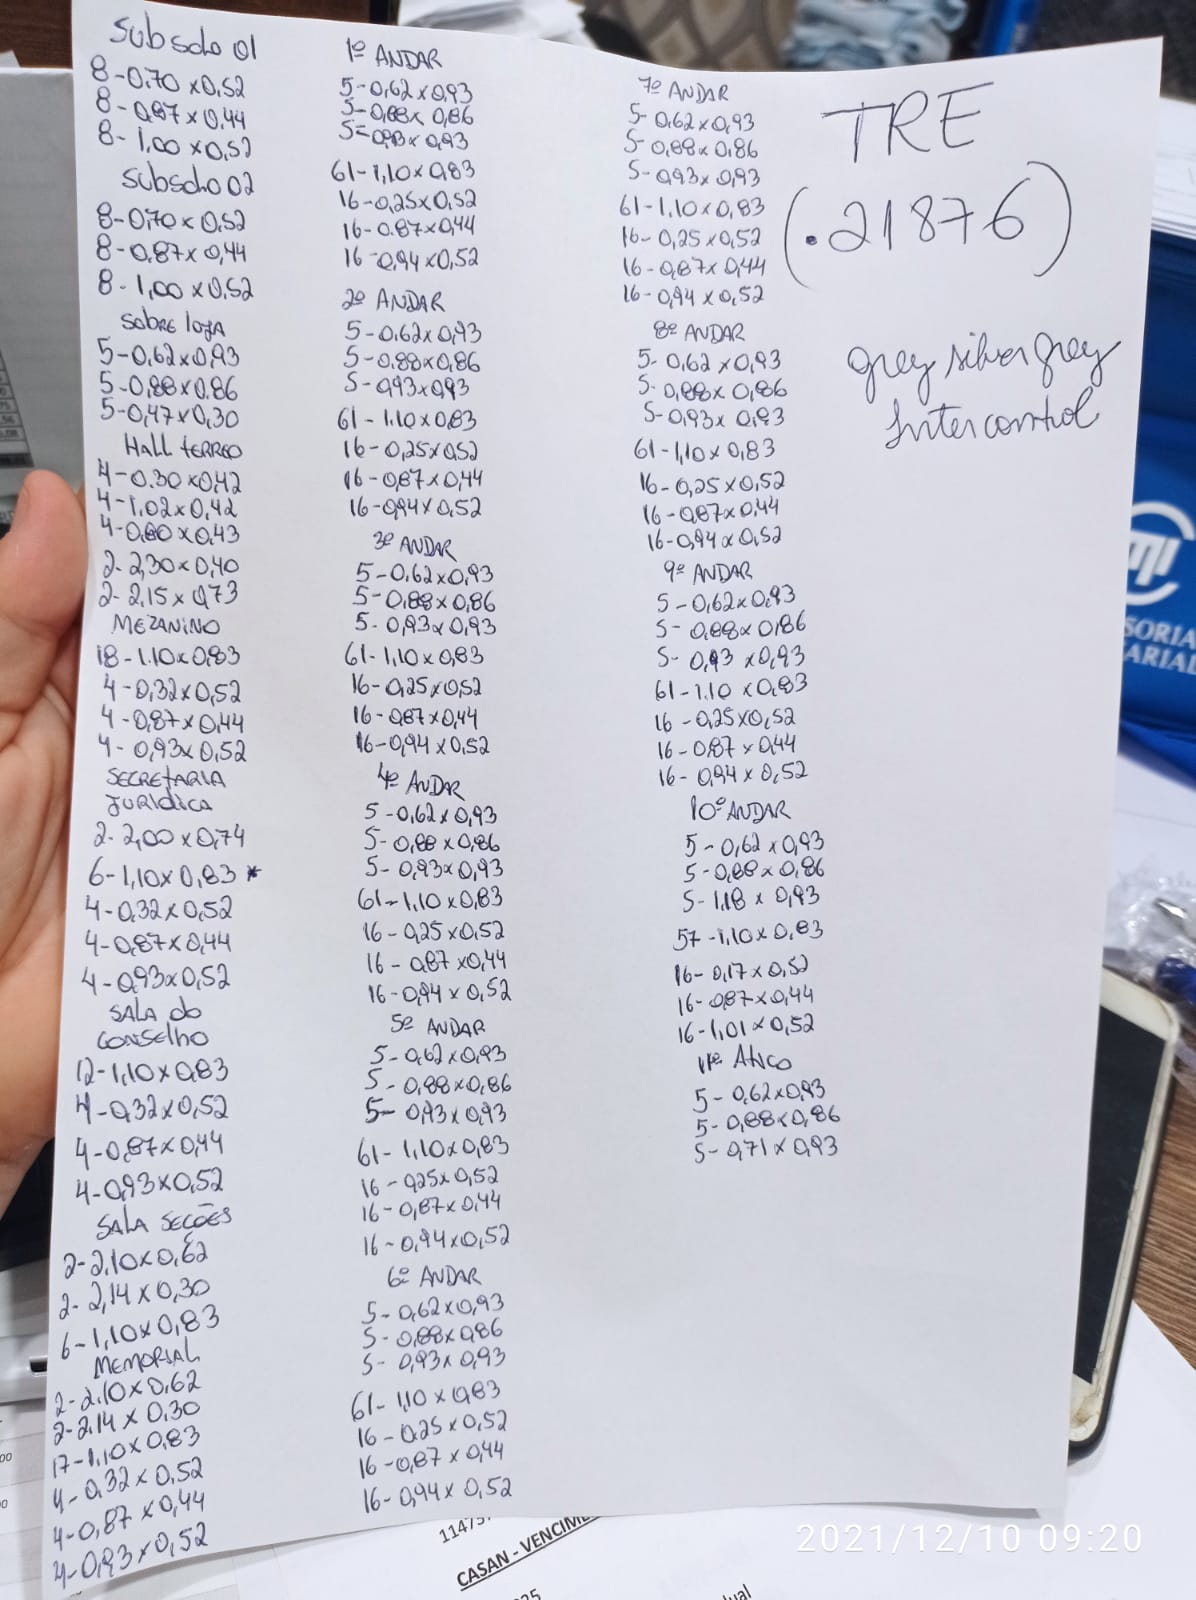 Subsolo 01
8-0.70 x 0,52
8-0,87 x 0,44
8-1,00 x 0,52
Subsolo 02
8-0,70 x 0,52
8-0,87 x 0,44
8-1,00 x 0,52
Sobre loja
5-0,62 x 0,93
5-0,88 x 0.86
5-0,47 x 0,30
Hall terreo
4-0.30 x 0,42
4-1,02 x 0,42
4-0,80 x 0,43
2-2,30 x 0,40
2-2,15 x 0,73
MEZANINO
18-1.10 x 0,83
4-0,32 x 0,52
4-0,87 x 0,44
4-0,93 x 0,52
SECRETARIA
JURIDICA
2-2,00 x 0,74
6-1,10 x 0,83 *
4-0,32 x 0,52
4-0,87 x 0,44
4-0,93 x 0,52
SALA do
CONSELHO
12-1,10 x 0,83
4-0,32 x 0,52
4-0,87 x 0,44
4-0,93 x 0,52
SALA SEÇÕES
2-2,10 x 0,62
2-2,14 x 0,30
6-1,10 x 0,83
MEMORIAL
2-2,10 x 0,62
2-2,14 x 0,30
17-1,10 x 0,83
4-0,32 x 0,52
4-0,87 x 0,44
4-0,93 x 0,52
1º ANDAR
5-0,62 x 0,93
5-0,88 x 0,86
5-0,93 x 0,93
61-1,10 x 0,83
16-0,25 x 0,52
16-0.87 x 0,44
16-0,94 x 0,52
2º ANDAR
5-0.62 x 0,93
5-0,88 x 0,86
5-0,93 x 0,93
61-1.10 x 0,83
16-0,25 x 0,52
16-0,87 x 0,44
16-0,94 x 0,52
3º ANDAR
5-0.62 x 0,93
5-0,88 x 0,86
5-0,93 x 0,93
61-1,10 x 0,83
16-0,25 x 0,52
16-0,87 x 0,44
16-0,94 x 0,52
4º ANDAR
5-0,62 x 0,93
5-0,88 x 0,86
5-0,93 x 0,93
61-1,10 x 0,83
16-0,25 x 0,52
16-0,87 x 0,44
16-0,94 x 0,52
5º ANDAR
5-0,62 x 0,93
5-0,88 x 0,86
5-0,93 x 0,93
61-1,10 x 0,83
16-0,25 x 0,52
16-0,87 x 0,44
16-0,94 x 0,52
6º ANDAR
5-0,62 x 0,93
5-0,88 x 0,86
5-0,93 x 0,93
61-1,10 x 0,83
16-0,25 x 0,52
16-0,87 x 0,44
16-0,94 x 0,52
7º ANDAR
5-0,62 x 0,93
5-0,88 x 0,86
5-0,93 x 0,93
61-1.10 x 0,83
16-0,25 x 0,52
16-0,87 x 0,44
16-0,94 x 0,52
8º ANDAR
5-0,62 x 0,93
5-0,88 x 0,86
5-0,93 x 0,93
61-1,10 x 0,83
16-0,25 x 0,52
16-0,87 x 0,44
16-0,94 x 0,52
9º ANDAR
5-0,62 x 0,93
5-0,88 x 0,86
5-0,93 x 0,93
61-1.10 x 0,83
16-0,25 x 0,52
16-0,87 x 0,44
16-0,94 x 0,52
10º ANDAR
5-0,62 x 0,93
5-0,88 x 0,86
5-1,18 x 0,93
57-1,10 x 0,83
16-0,17 x 0,52
16-0,87 x 0,44
16-1,01 x 0,52
11º Atico
5-0,62 x 0,93
5-0,88 x 0,86
5-0,71 x 0,93
TRE
(.21876)
grey silver grey
Intercontrol
SORIA
ARIAL
CASAN - VENCIME
2021/12/10 09:20